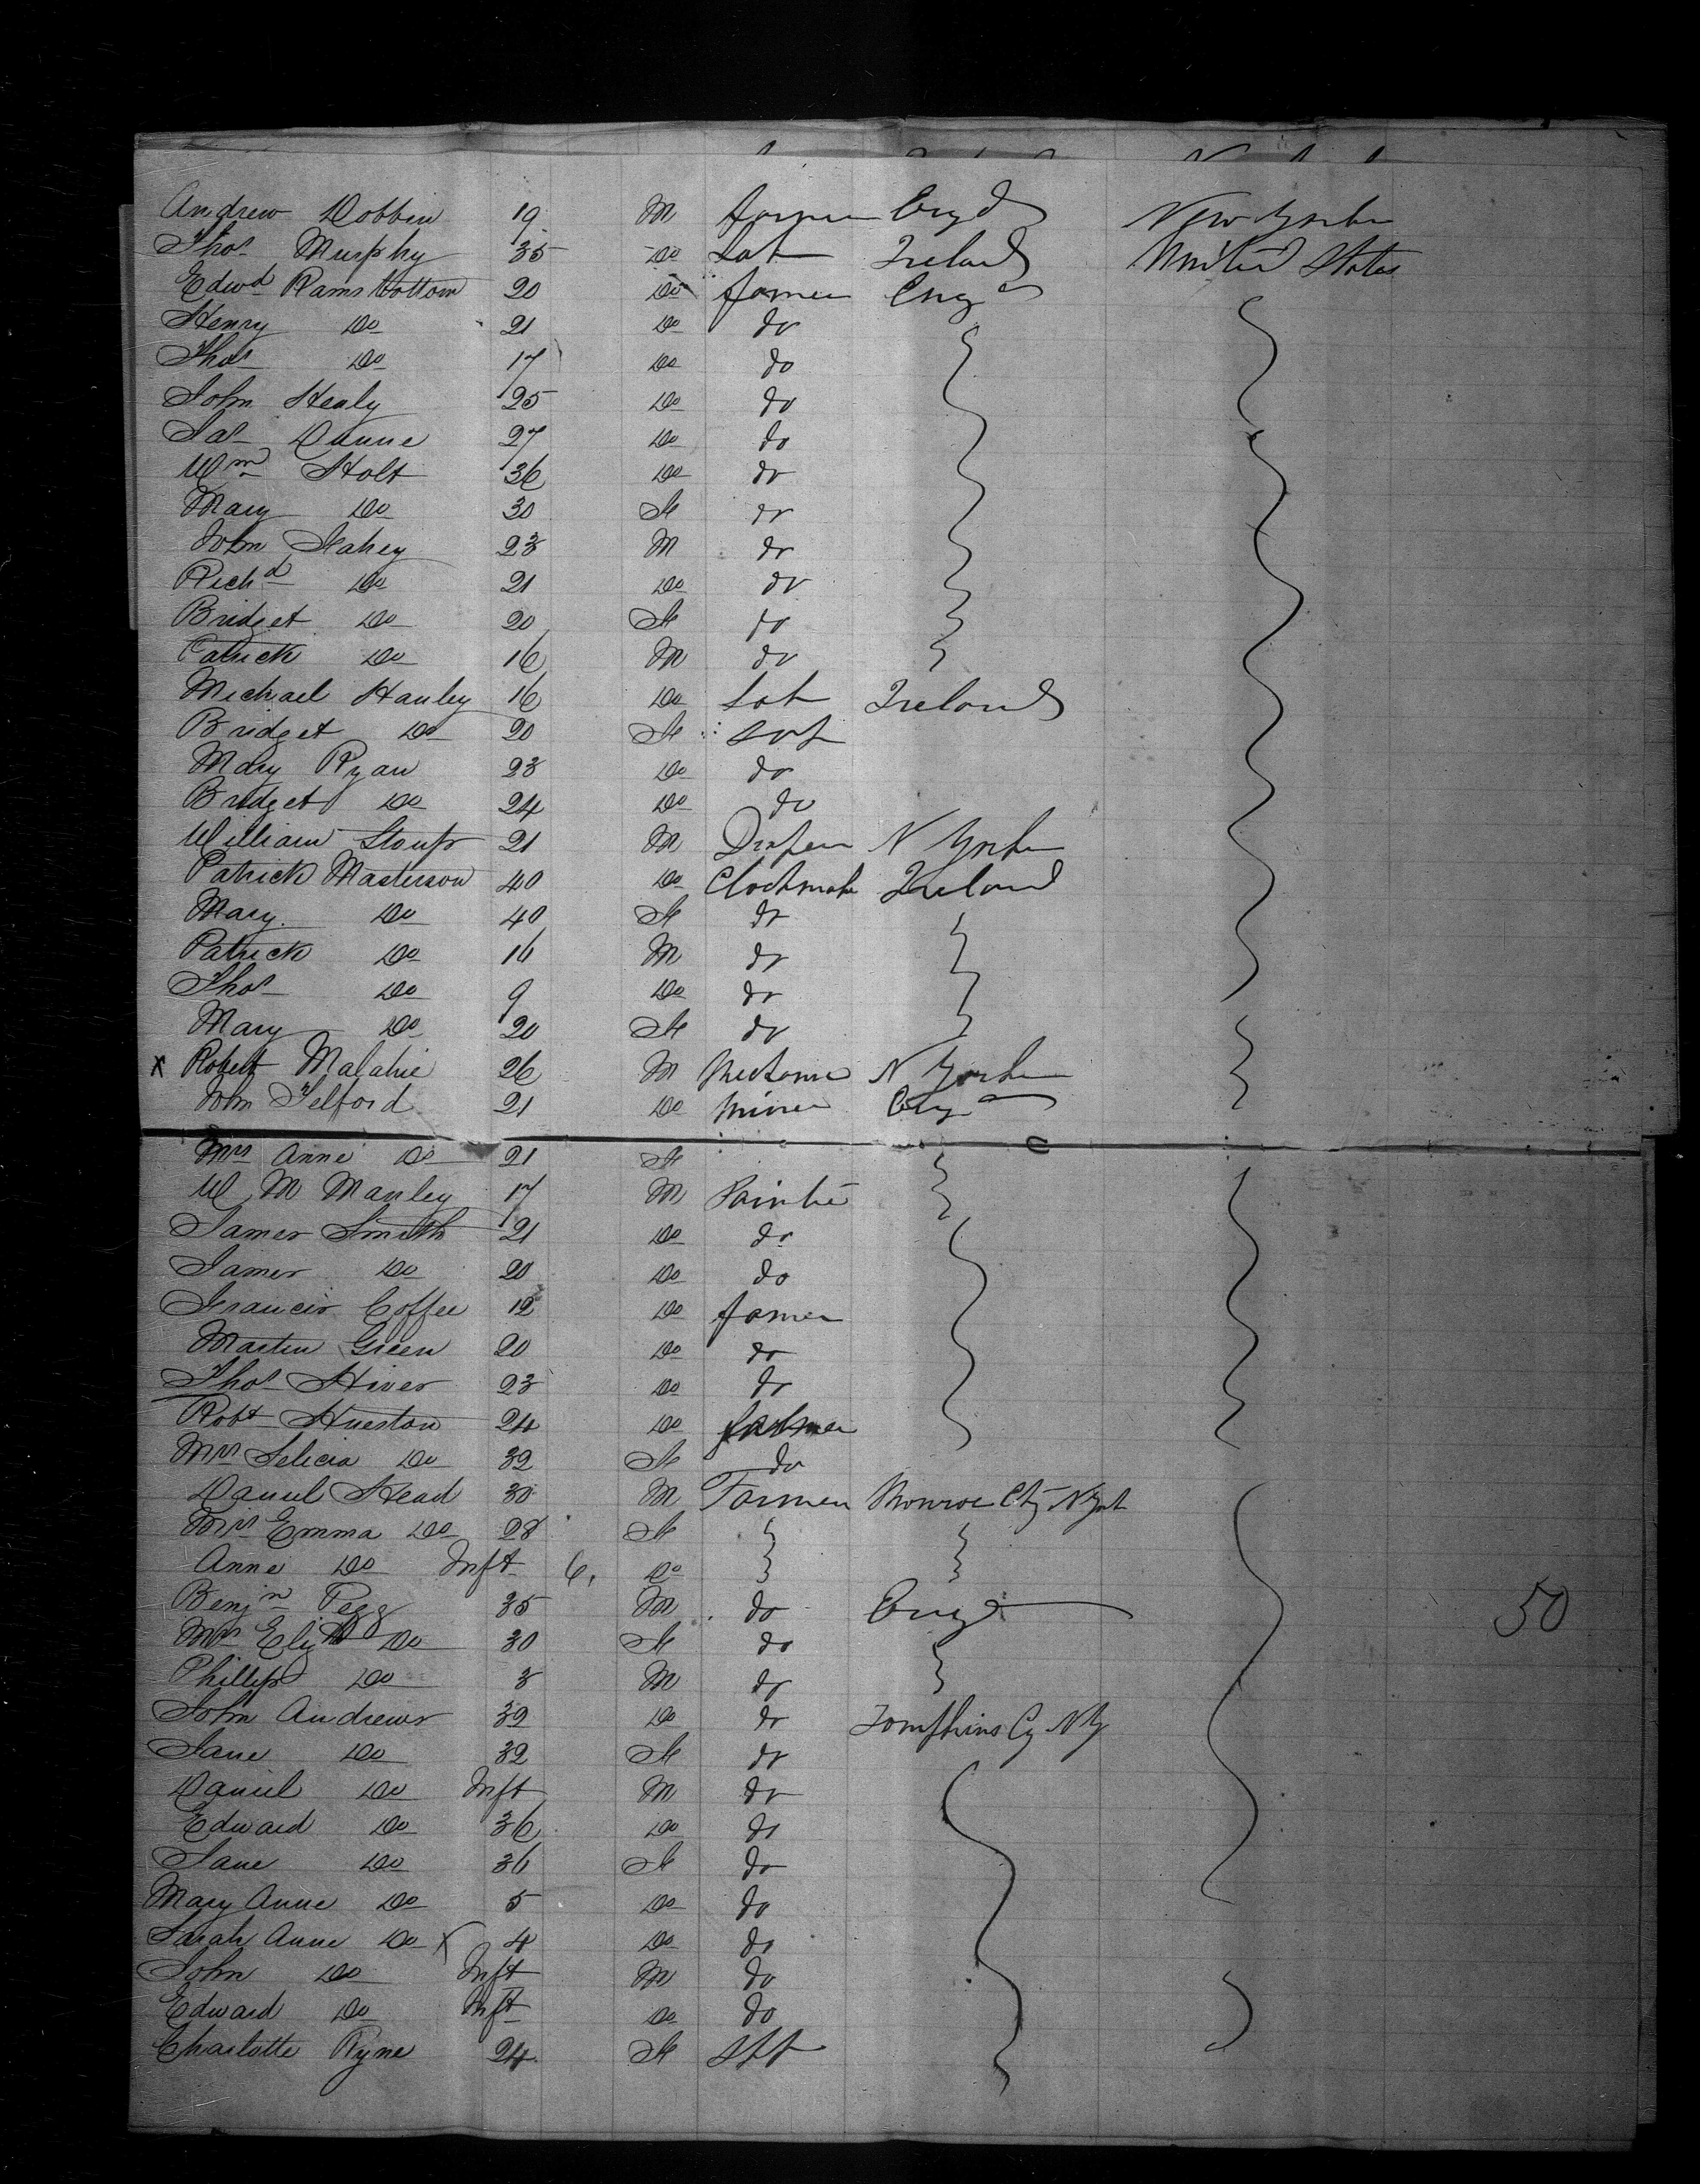 Andrew Dobbin 19 M farmer Engd New York
Thos Murphy 35 Do Lab Ireland United States
Edwd Ramsbottom 20 Do farmer Eng
Henry Do 21 Do do
Thos Do 17 Do do
John Healy 25 Do do
Jas Dunne 27 Do do
Wm Holt 36 Do do
Mary Do 30 F do
John Fahey 23 M do
Richd Do 21 Do do
Bridget Do 20 F do
Patrick Do 16 M do
Michael Hanley 16 Do Lab Ireland
Bridget Do 20 F
Mary Ryan 23 Do do
Bridget Do 24 Do do
William Stoup 21 M Draper N York
Patrick Masterson 40 Do Clockmak Ireland
Mary Do 40 F do
Patrick Do 16 M do
Thos Do 9 Do do
Mary Do 20 F do
x Robert Malahie 26 M N York
John Telford 21 Do Miner Eng
Mrs Anne Do 21 F
W M Manley 17 M Painter
James Smith 21 Do do
James Do 20 Do do
Francis Coffee 12 Do farmer
Martin Green 20 Do do
Thos Hiver 23 Do do
Robt Hueston 24 Do farmer
Mrs Felicia Do 32 F do
Daniel Head 30 M Farmer Monroe Cty N York
Mrs Emma Do 28 F
Anne Do Inft 6, Do
Benjn Pegg 35 M do Eng
Mrs Elizth Do 30 F do 50
Phillip Do 3 M do
John Andrews 32 Do do Tompkins Cy NY
Jane Do 32 F do
Daniel Do Inft M do
Edward Do 36 Do do
Jane Do 36 F do
Mary Anne Do 5 Do do
Sarah Anne Do x 4 Do do
John Do Inft M do
Edward Do Inft Do do
Charlotte Ryne 24 F